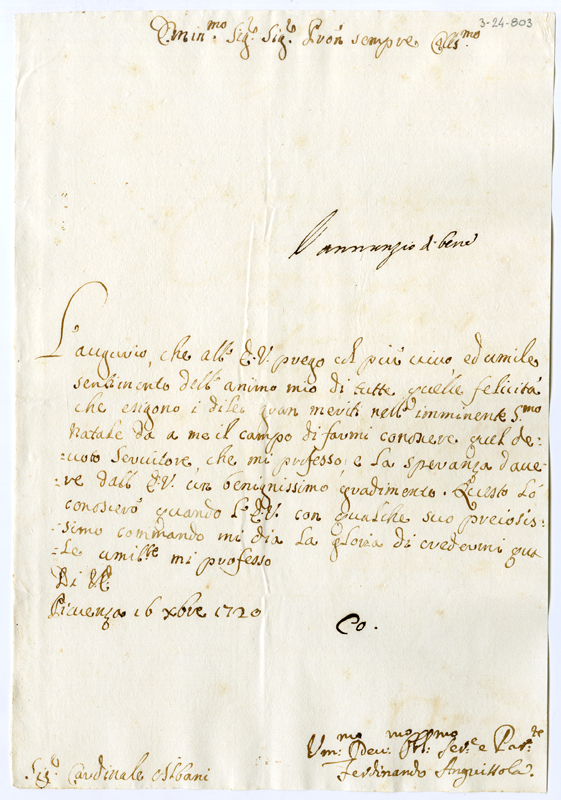 3-24-803
Emin.mo Sig.r Sig.r Pron sempre Coll.mo
L'annunzio di bene
L'augurio, che all' E.V. prego col più vivo ed umile
sentimento dell' animo mio di tutte quelle felicità
che esigono i di lei gran meriti nell' imminente S.mo
Natale da a me il campo di farmi conoscere quel de:
:uoto Seruitore, che mi professo, e la speranza d'aue:
:re dall' E.V. un benignissimo gradimento. Questo lo
conoscerò quando l' E.V. con qualche suo preciosis:
:simo commando mi dia la gloria di credermi qua
:le umil.te mi professo
Di V.E.
Piacenza 16 Xbre 1720
Co.
Vm:mo Deu:mo Obl:mo Ser.e e Par.te
Ferdinando Anguissola.
Sig.r Cardinale Albani